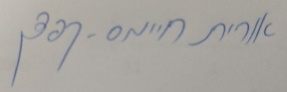 אורית חיימס - קפצן